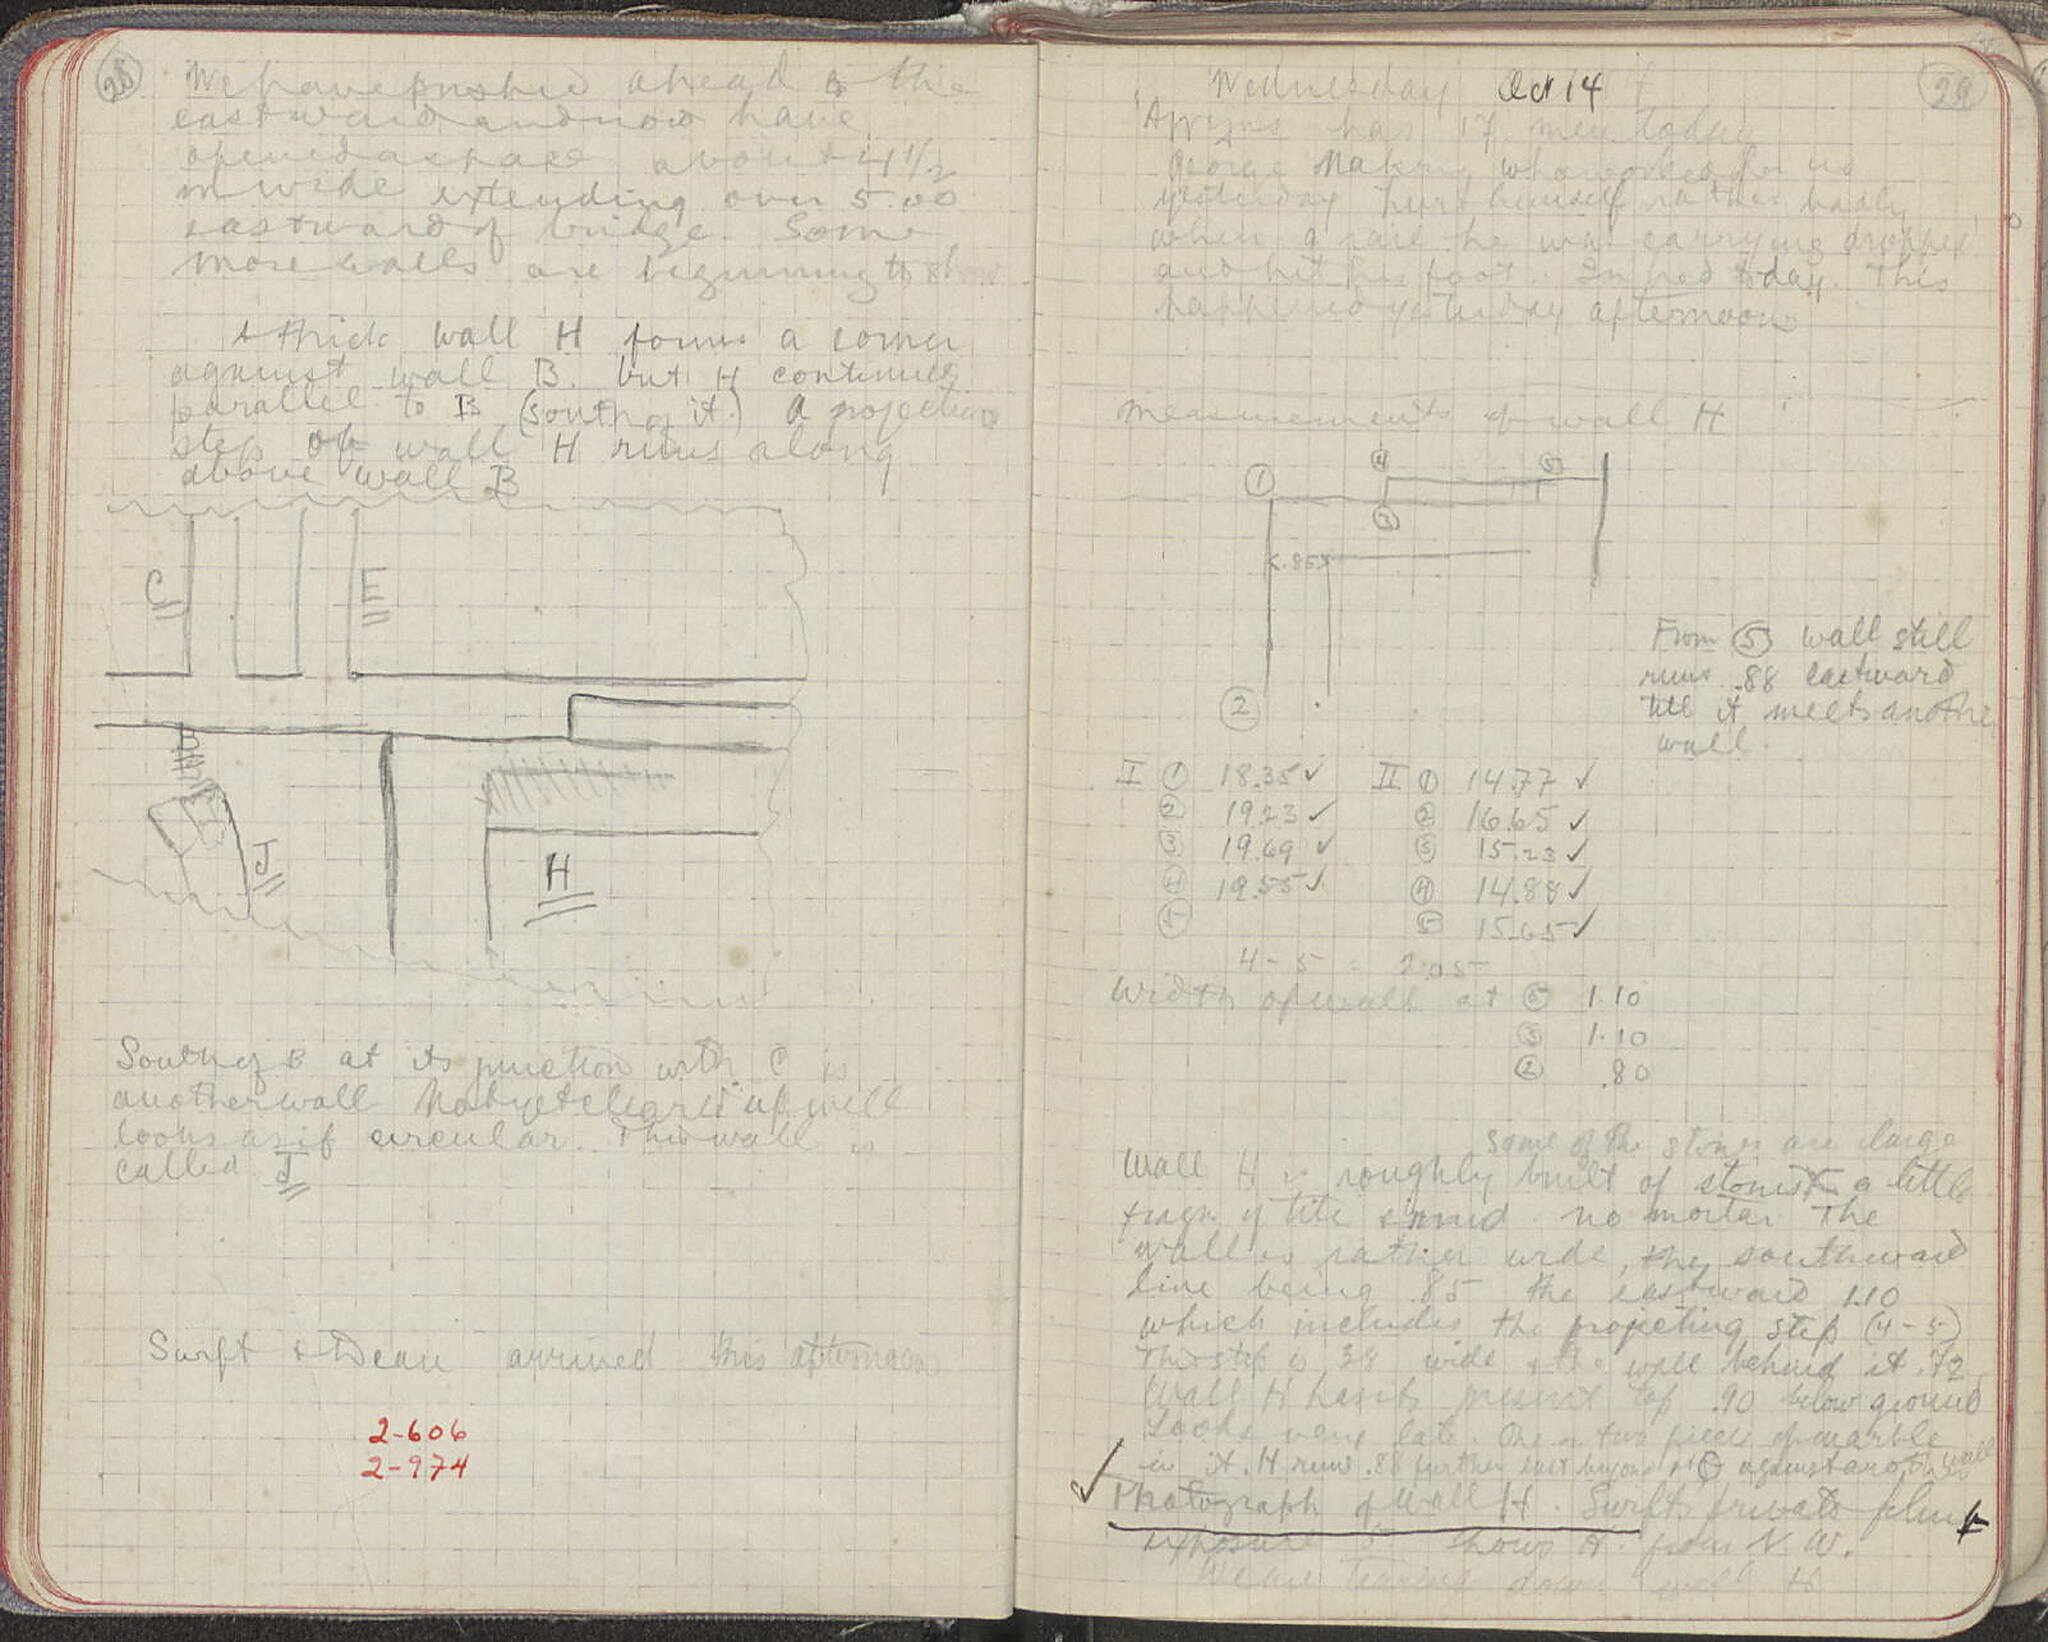 28
We have pushed ahead to the
eastward and now have
opened a space about 4 1/2
m wide extending over 5.00
eastward of bridge. Some
more walls are beginning to show
A thick wall H forms a corner
against wall B. but H continues
parallel to B (south of it.) A projecting
step of wall H runs along
above wall B
C
E
J
H
South of B at its junction with C is
another wall Not yet cleared up well
looks as if circular. This wall is
called J
Swift & Dean arrived this afternoon
2-606
2-974
29
Wednesday Oct 14
has 17 men today
George who worked for us
yesterday hurt himself rather badly
when a rail he was carrying dropped
and hit his foot. In bed today. This
happened yesterday afternoon
Measurements of wall H
1
4
5
3
.85
2
From 5 wall still
runs .88 eastward
till it meets another
wall.
I 1 18.35 ✓ II 1 14.77 ✓
2 19.23 ✓ 2 16.65 ✓
3 19.69 ✓ 3 15.23 ✓
4 19.55 ✓ 4 14.88 ✓
5 5 15.65 ✓
4 - 5 = 2.05
Width of wall at 5 1.10
3 1.10
2 .80
some of the stones are large
Wall H is roughly built of stones & a little
fragm of tile & mud. no mortar The
wall is rather wide, the southward
line being .85 the eastward 1.10
which includes the projecting step (4-5)
This step is .38 wide & the wall behind it .72
Wall H has its present top .90 below ground
Looks very late. One or two pieces of marble
in it. H runs .88 further east beyond pt 5 against another wall
✓ Photograph of Wall H. Swift's private film
exposure 5 shows H from N.W.
We are tearing down wall H